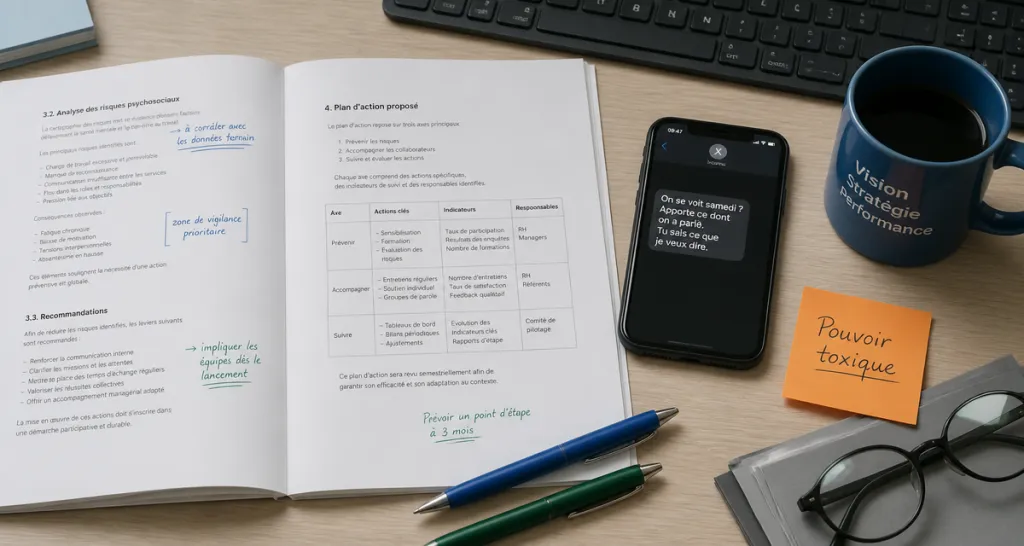 3.2. Analyse des risques psychosociaux
La cartographie des risques met en évidence plusieurs facteurs
déterminant la santé mentale et le bien-être au travail.
Les principaux risques identifiés sont :
– Charge de travail excessive et
– Manque de reconnaissance
– Communication insuffisante entre les services
– Flou dans les rôles et responsabilités
– Pression liée aux objectifs
Conséquences observées :
– Fatigue chronique
– Baisse de motivation
– Tensions interpersonnelles
– Absentéisme en hausse
Ces éléments soulignent la nécessité d'une action
préventive et globale.
→ à corréler avec
les données terrain
[zone de vigilance
prioritaire]
3.3. Recommandations
Afin de réduire les risques identifiés, les leviers suivants
sont recommandés :
– Renforcer la communication interne
– Clarifier les missions et les attentes
– Mettre en place des temps d'échange réguliers
– Valoriser les réussites collectives
– Offrir un accompagnement managérial adapté
La mise en œuvre de ces actions doit s'inscrire dans
une démarche participative et durable.
→ impliquer les
équipes dès le
lancement
4. Plan d'action proposé
Le plan d'action repose sur trois axes principaux
1. Prévenir les risques
2. Accompagner les collaborateurs
3. Suivre et évaluer les actions
Chaque axe comprend des actions spécifiques,
des indicateurs de suivi et des responsables identifiés.
Axe Actions clés Indicateurs Responsables
Prévenir
– Sensibilisation
– Formation
– Évaluation des
risques
Taux de participation
Résultats des enquêtes
Nombre de formations
RH
Managers
Accompagner
– Entretiens réguliers
– Soutien individuel
– Groupes de parole
Nombre d'entretiens
Taux de satisfaction
Feedback qualitatif
RH
Référents
Suivre
– Tableaux de bord
– Bilans périodiques
– Ajustements
Évolution des
indicateurs clés
Rapports d'étape
Comité de
pilotage
Ce plan d'action sera revu semestriellement afin de
garantir son efficacité et son adaptation au contexte.
Prévoir un point d'étape
à 3 mois
09:47
X
On se voit samedi ?
Apporte ce dont
on a parlé.
Tu sais ce que
je veux dire.
Vision
Stratégie
Performance
Pouvoir
toxique